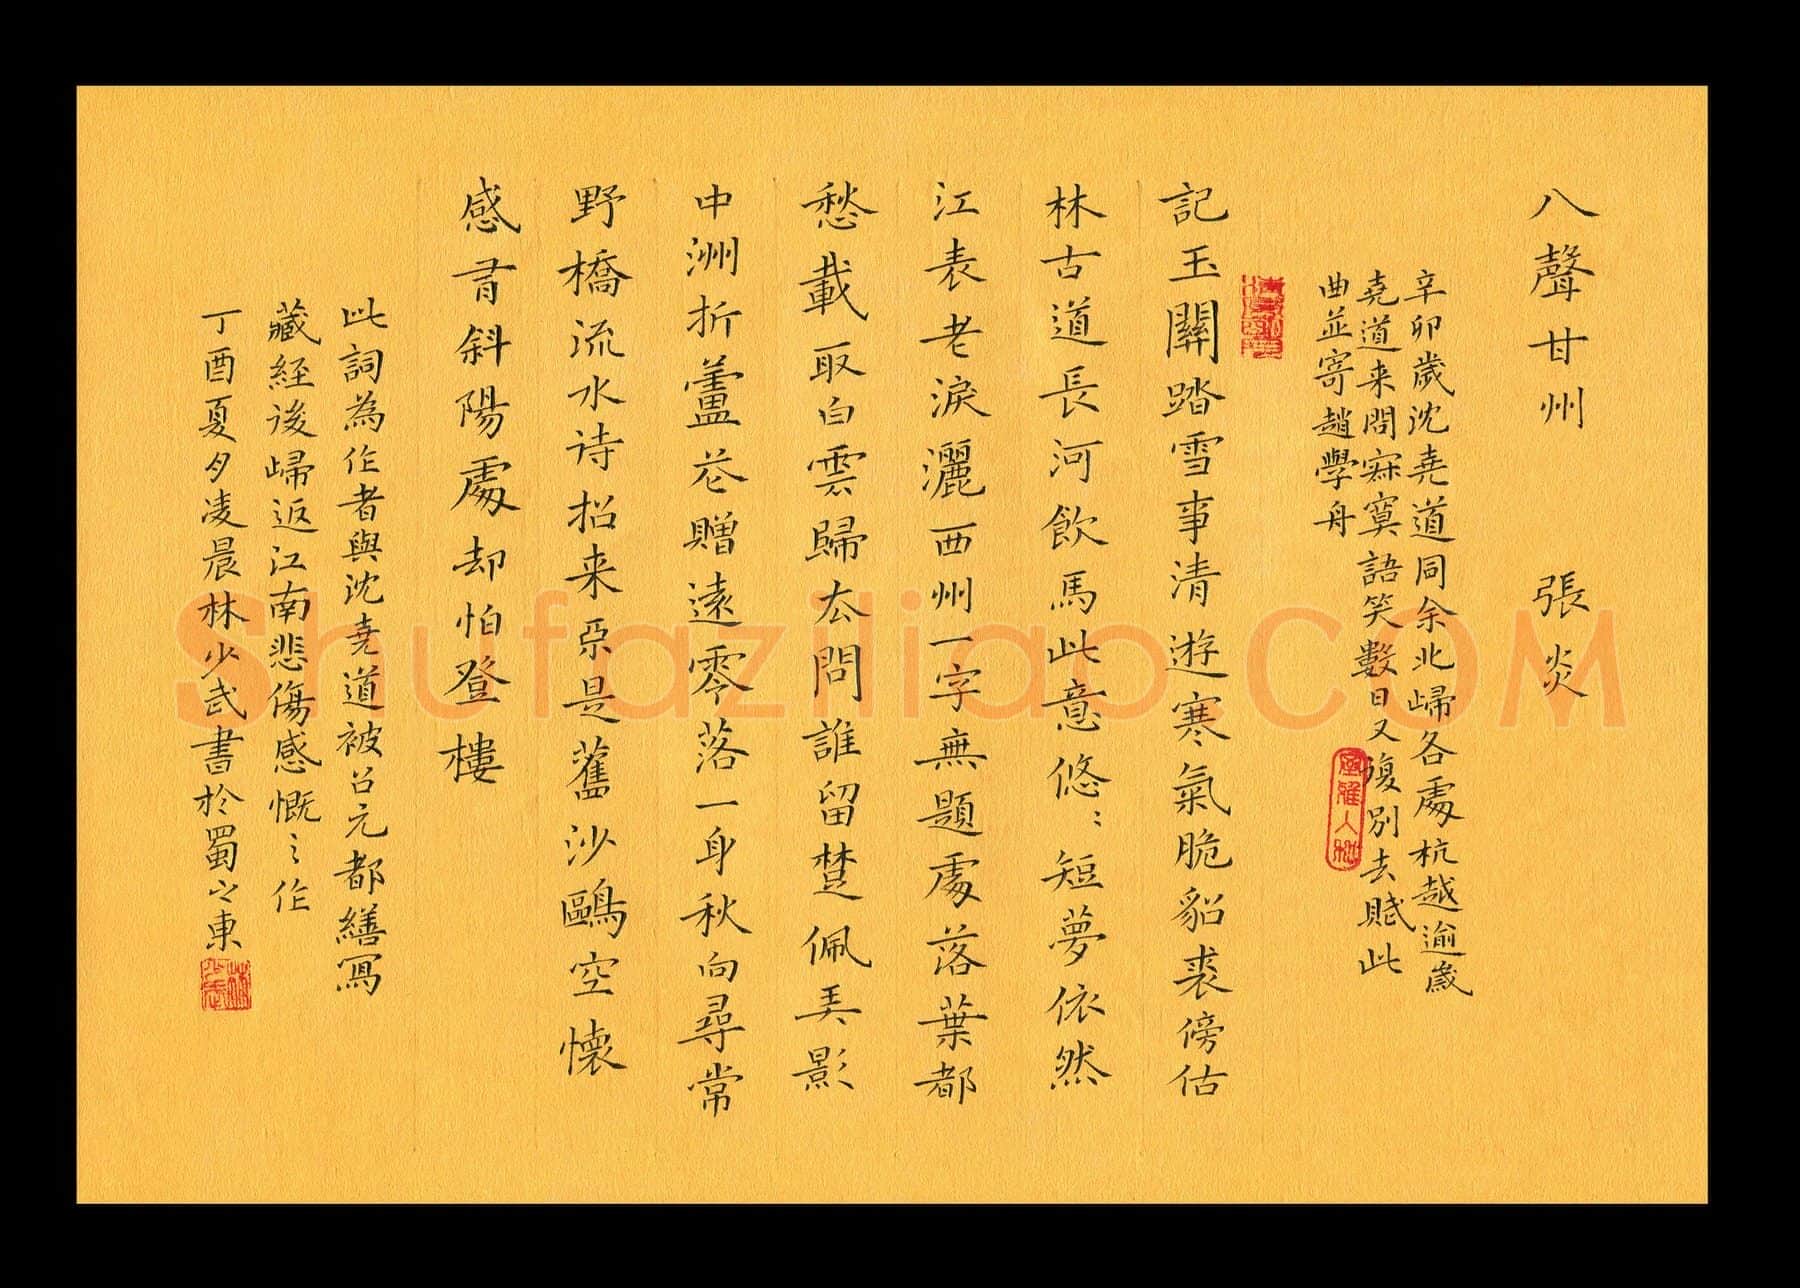 八聲甘州 張炎
辛卯歲沈堯道同余北歸各處杭越逾歲
堯道来問寂寞語笑數日又復別去賦此
曲並寄趙學舟
記玉關踏雪事清遊寒氣脆貂裘傍估
林古道長河飲馬此意悠〻短夢依然
江表老淚灑西州一字無題處落葉都
愁載取白雲歸去問誰留楚佩弄影
中洲折蘆花贈遠零落一身秋向尋常
野橋流水诗招来不是舊沙鷗空懷
感有斜陽處却怕登樓
此詞為作者與沈堯道被召元都繕寫
藏經後歸返江南悲傷感慨之作
丁酉夏夕凌晨林少武書於蜀之東
Shufaziliao.COM